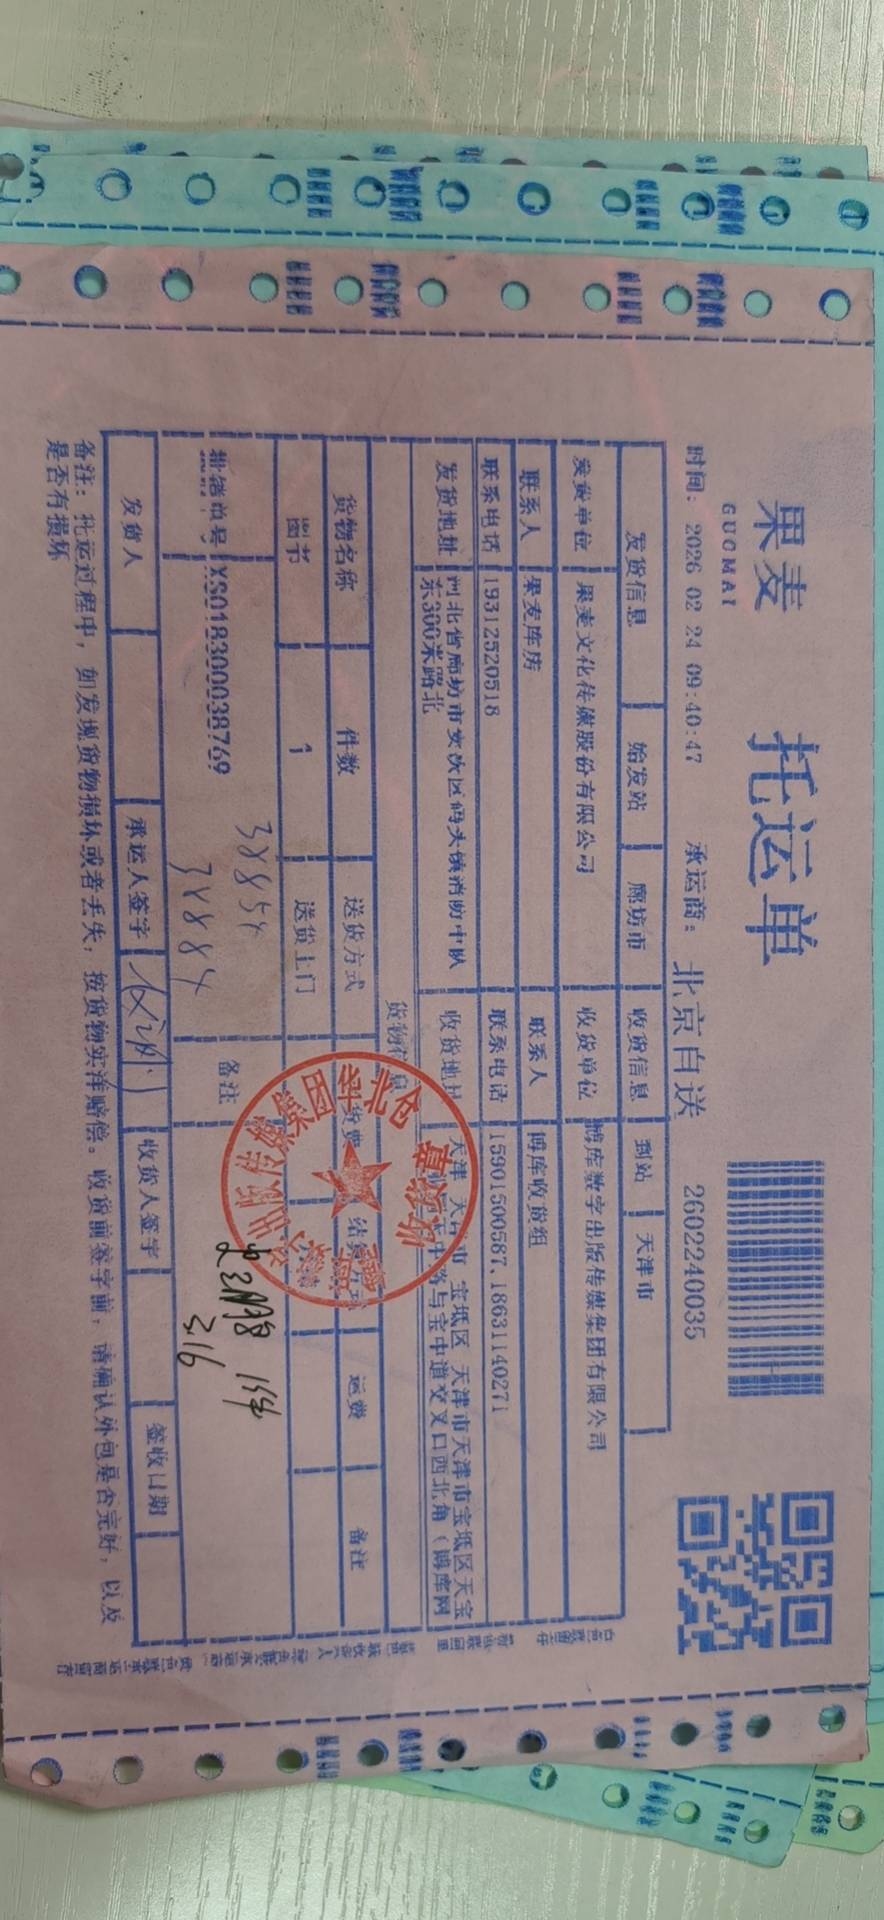 果麦
GUOMAI
托运单
时间: 2026 02 24 09:40:47 承运商: 北京自送 2602240035
发货信息 始发站 廊坊市 收货信息 到站 天津市
发货单位 果麦文化传媒股份有限公司 收货单位 博库数字出版传媒集团有限公司
联系人 果麦库房 联系人 博库收货组
联系电话 19312520518 联系电话 15901500587,18631140271
发货地址 河北省廊坊市安次区码头镇消防中队东300米路北 收货地址 天津 天津市 宝坻区 天津市天津市宝坻区天宝
中路与宝中道交叉口西北角（博库网
货物信息
货物名称 件数 送货方式 货费 结费方式 运费 备注
图书 1 送货上门
批销单号 XS018300038769 备注
38854
38884
316
发货人 承运人签字 收货人签字 签收日期
备注: 托运过程中，如发现货物损坏或者丢失，按货物实洋赔偿。收货前签字前，请确认外包是否完好，以及
是否有损坏